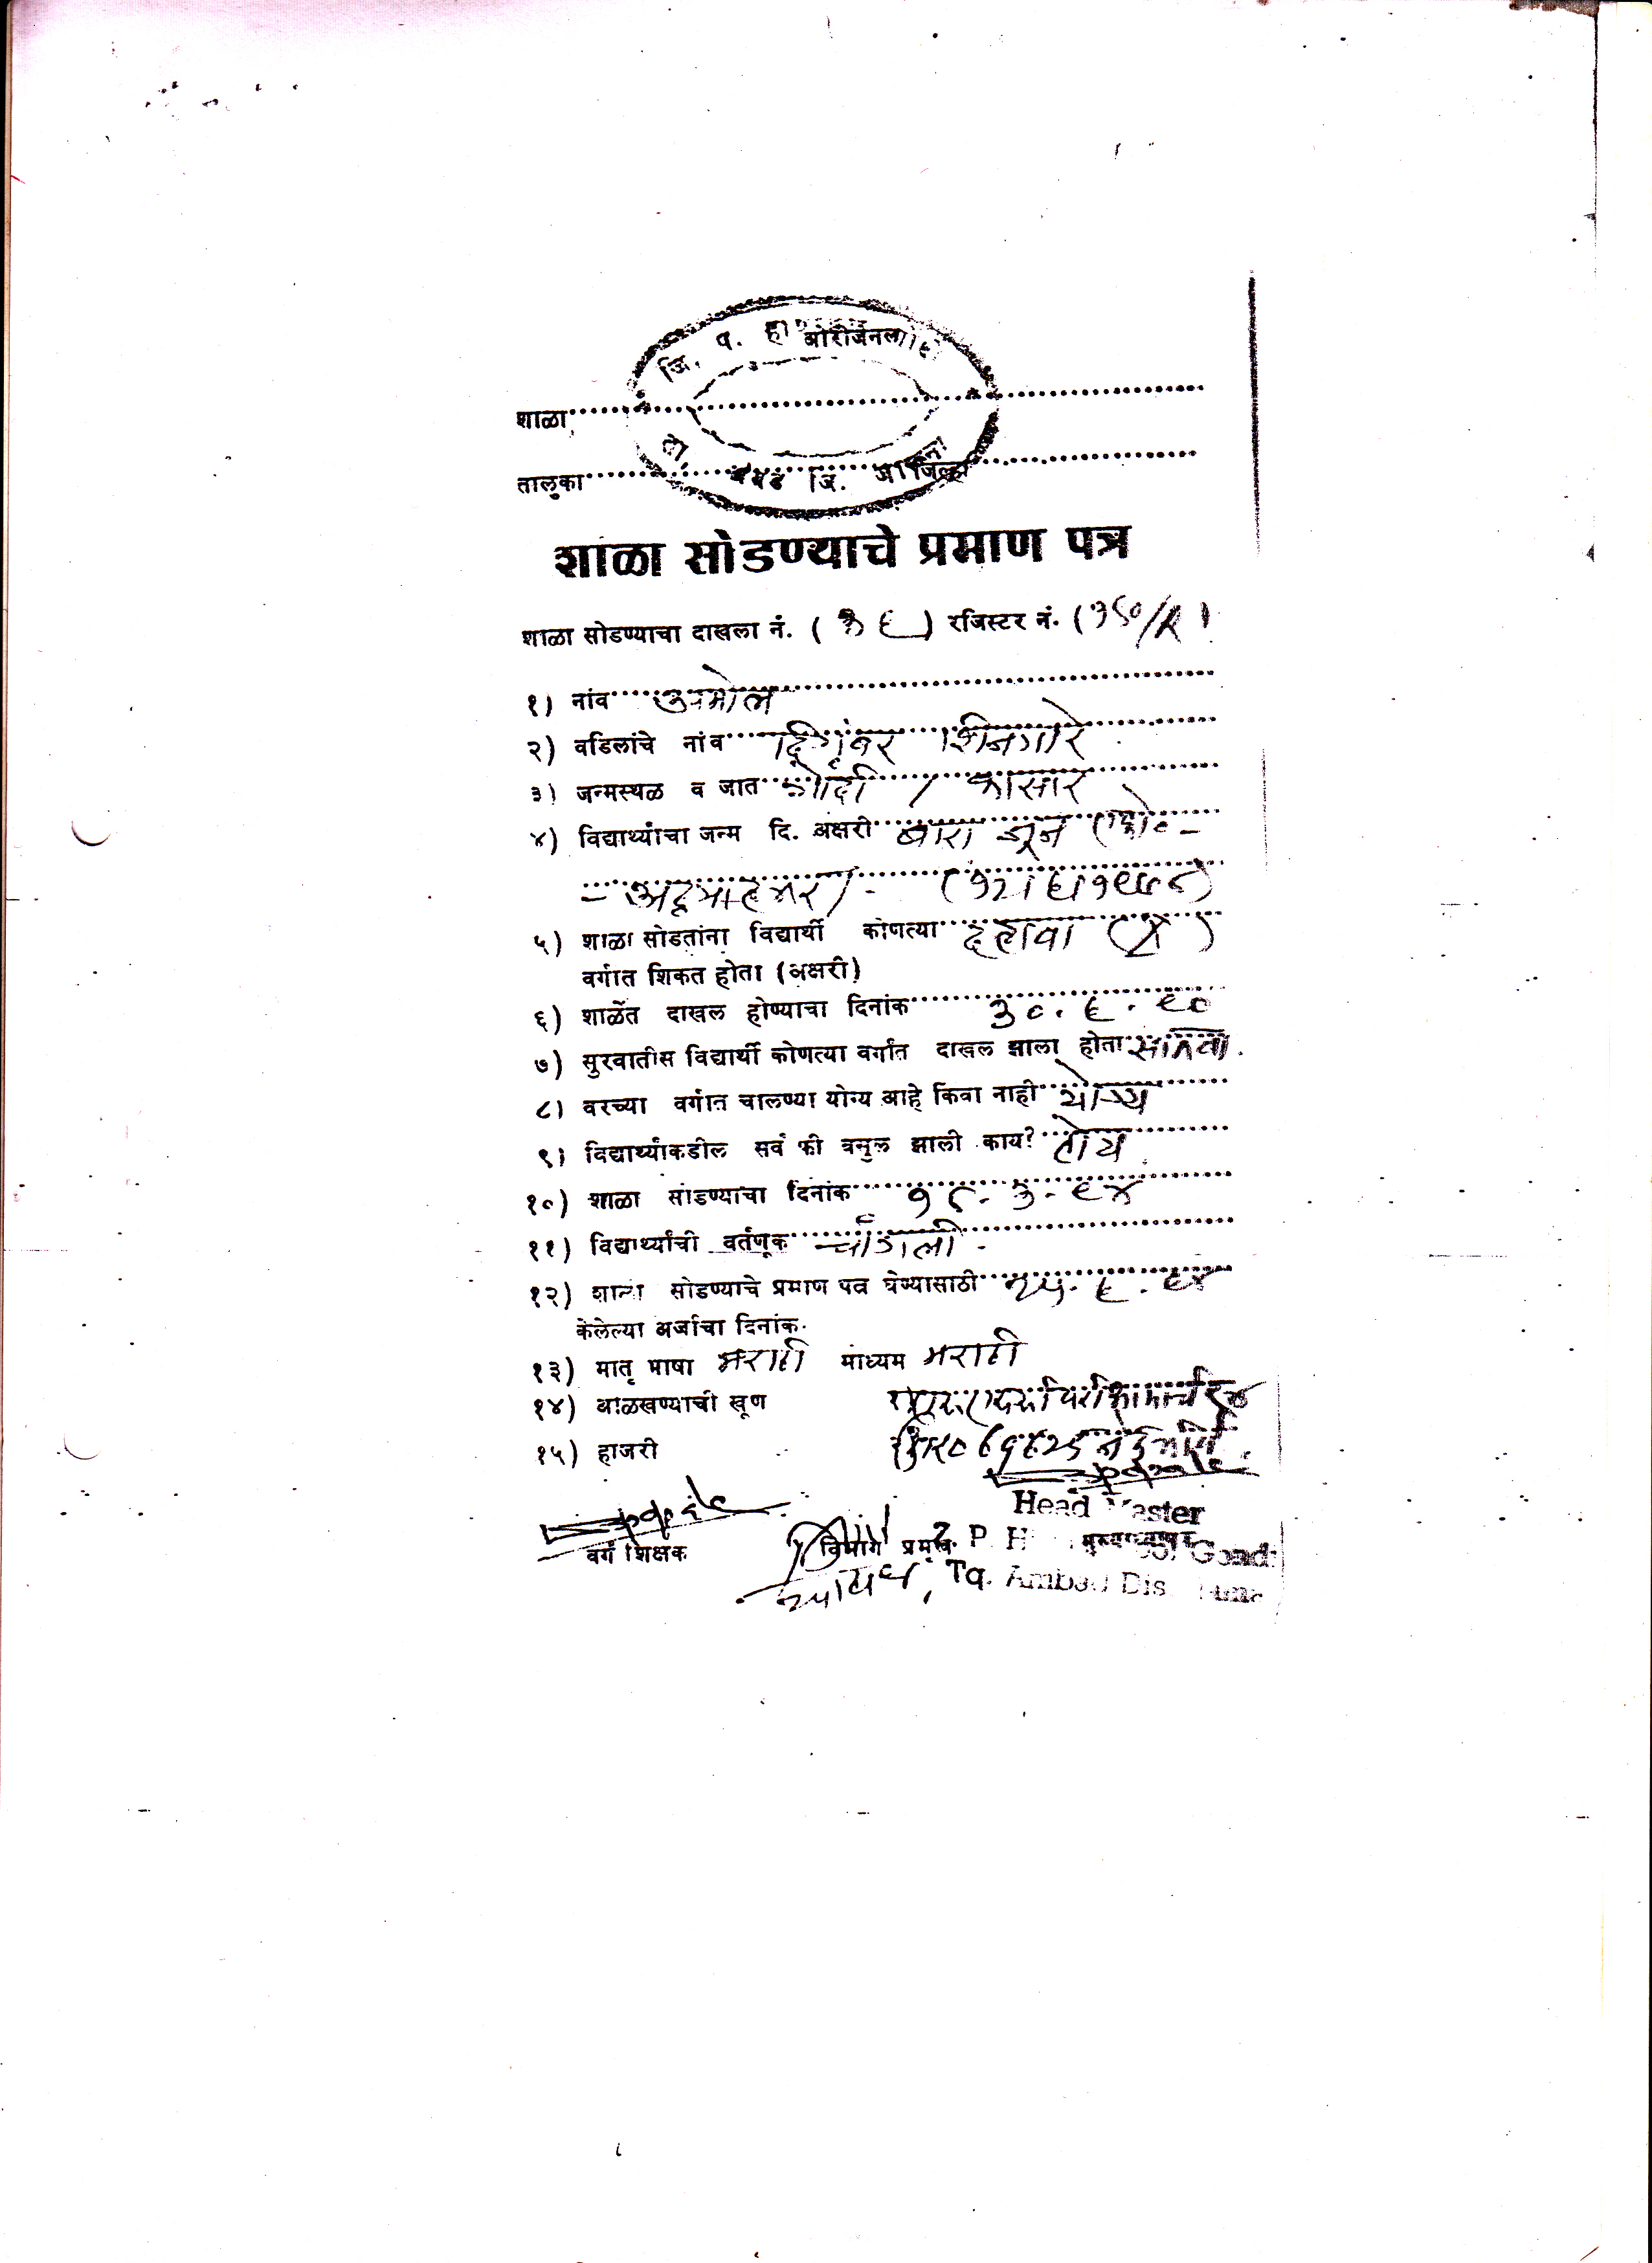 जि. प. हा
ओरीजनल
शाळा
ता. अंबड जि. जालना
तालुका जिल्हा
शाळा सोडण्याचे प्रमाण पत्र
शाळा सोडण्याचा दाखला नं. ( ३६ ) रजिस्टर नं. (
१) नांव अमोल
२) वडिलांचे नांव दिगंबर शिनगारे
३) जन्मस्थळ व जात गोंदी / कासार
४) विद्यार्थ्याचा जन्म दि. अक्षरी बारा जून एकोण -
- अठ्ठ्याहत्तर / - (१२।६।१९७८)
५) शाळा सोडतांना विद्यार्थी कोणत्या दहावा (X)
वर्गात शिकत होता (अक्षरी)
६) शाळेत दाखल होण्याचा दिनांक ३०.६.९०
७) सुरवातीस विद्यार्थी कोणत्या वर्गात दाखल झाला होता सातवा.
८) वरच्या वर्गात चालण्या योग्य आहे किंवा नाही योग्य
९) विद्यार्थ्याकडील सर्व फी वसुल झाली काय? होय
१०) शाळा सोडण्याचा दिनांक १८-३-९४
११) विद्यार्थ्यांची वर्तणूक चांगली -
१२) शाळा सोडण्याचे प्रमाण पत्र घेण्यासाठी २५.६.९४
केलेल्या अर्जाचा दिनांक.
१३) मातृ भाषा मराठी माध्यम मराठी
१४) ओळखण्याची खूण
१५) हाजरी
Head Master
वर्ग शिक्षक विभाग प्रमुख Z. P. H मुख्याध्यापक Gondi
Tq. Ambad Dis